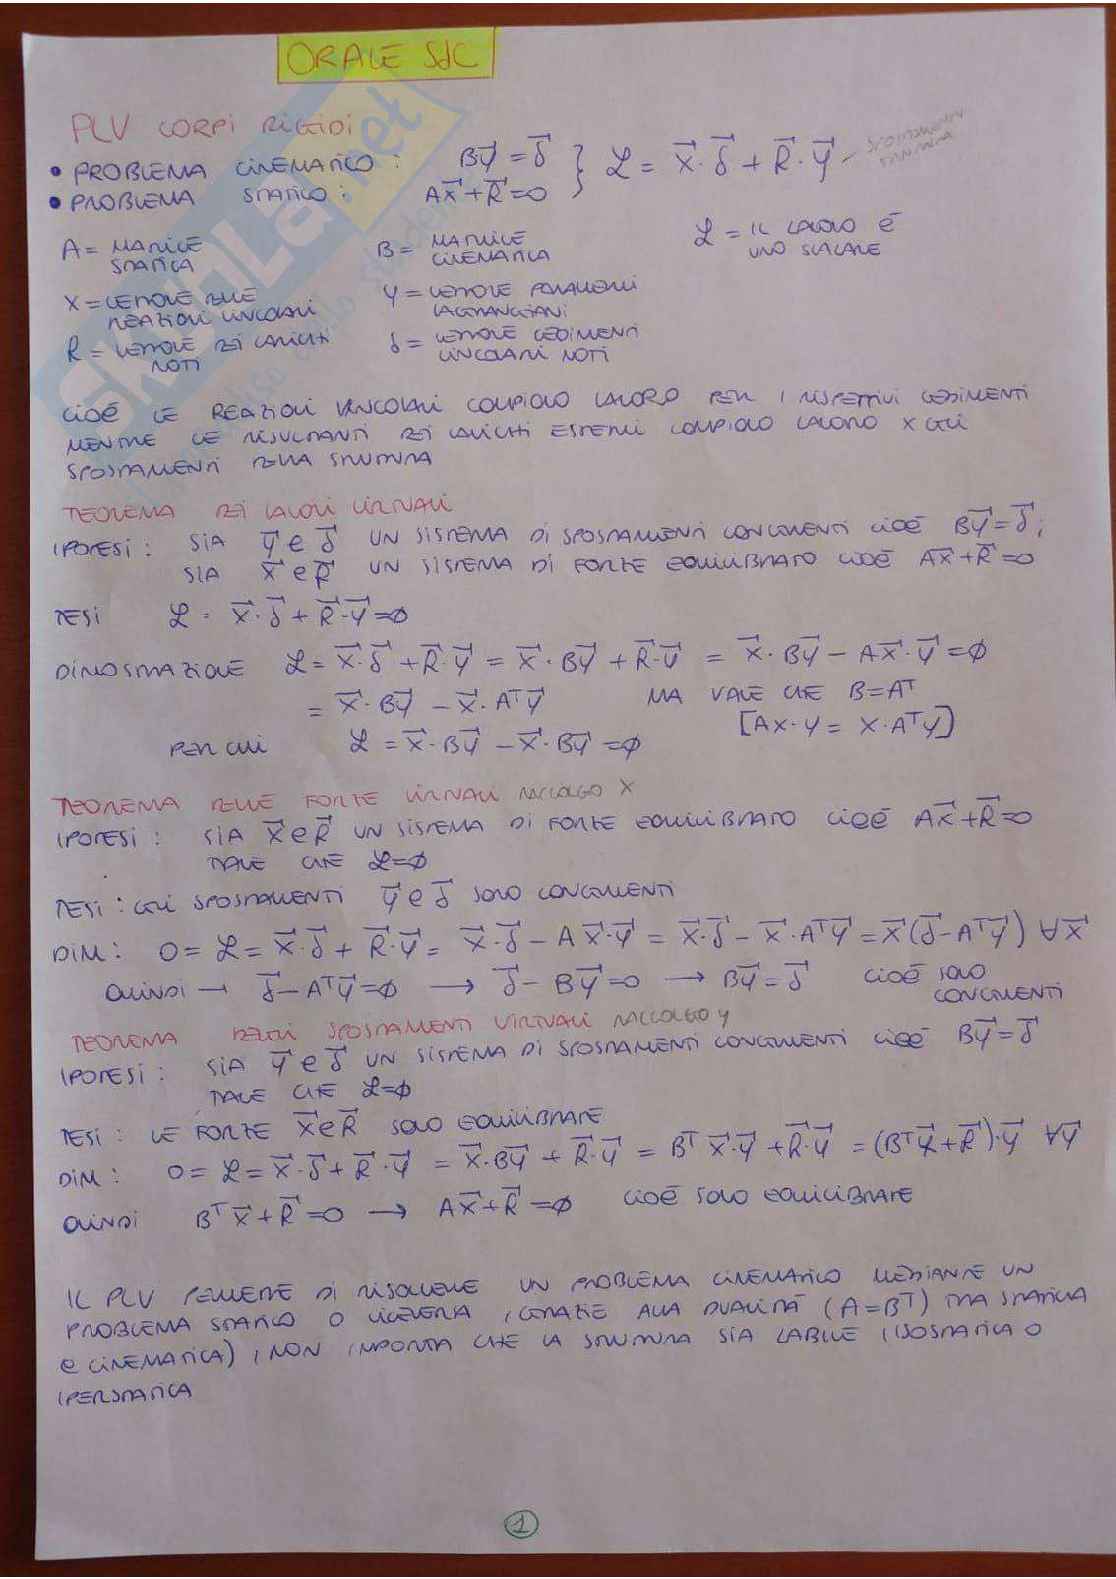 ORALE SdC
PLV CORPI RIGIDI
• PROBLEMA CINEMATICO : By⃗ = δ⃗
• PROBLEMA STATICO : Ax⃗+R⃗=0 } ℒ = x⃗·δ⃗ + R⃗·y⃗ - SPOSTAMENTI STRUTTURA
A = MATRICE STATICA B = MATRICE CINEMATICA ℒ = IL LAVORO È UNO SCALARE
X = VETTORE DELLE REAZIONI VINCOLARI Y = VETTORE PARAMETRI LAGRANGIANI
R = VETTORE DEI CARICHI NOTI δ = VETTORE CEDIMENTI VINCOLARI NOTI
CIOÈ LE REAZIONI VINCOLARI COMPIONO LAVORO PER I RISPETTIVI CEDIMENTI
MENTRE LE RISULTANTI DEI CARICHI ESTERNI COMPIONO LAVORO X GLI
SPOSTAMENTI DELLA STRUTTURA
TEOREMA DEI LAVORI VIRTUALI
IPOTESI : SIA y⃗ e δ⃗ UN SISTEMA DI SPOSTAMENTI CONGRUENTI CIOÈ By⃗=δ⃗;
SIA x⃗ e R⃗ UN SISTEMA DI FORZE EQUILIBRATO CIOÈ Ax⃗+R⃗=0
TESI ℒ = x⃗·δ⃗ + R⃗·y⃗=∅
DIMOSTRAZIONE ℒ = x⃗·δ⃗ + R⃗·y⃗ = x⃗·By⃗ + R⃗·y⃗ = x⃗·By⃗ - Ax⃗·y⃗ =∅
= x⃗·By⃗ - x⃗·Aᵀy⃗ MA VALE CHE B=Aᵀ
[Ax·y = x·Aᵀy]
PER CUI ℒ = x⃗·By⃗ - x⃗·By⃗ =∅
TEOREMA DELLE FORZE VIRTUALI RACCOLGO X
IPOTESI : SIA x⃗ e R⃗ UN SISTEMA DI FORZE EQUILIBRATO CIOÈ Ax⃗+R⃗=0
TALE CHE ℒ=∅
TESI : GLI SPOSTAMENTI y⃗ e δ⃗ SONO CONGRUENTI
DIM : 0= ℒ = x⃗·δ⃗ + R⃗·y⃗ = x⃗·δ⃗ - Ax⃗·y⃗ = x⃗·δ⃗ - x⃗·Aᵀy⃗ = x⃗(δ⃗-Aᵀy⃗) ∀x⃗
QUINDI → δ⃗-Aᵀy⃗=∅ → δ⃗ - By⃗=0 → By⃗=δ⃗ CIOÈ SONO CONGRUENTI
TEOREMA DEGLI SPOSTAMENTI VIRTUALI RACCOLGO y
IPOTESI : SIA y⃗ e δ⃗ UN SISTEMA DI SPOSTAMENTI CONGRUENTI CIOÈ By⃗=δ⃗
TALE CHE ℒ=∅
TESI : LE FORZE x⃗ e R⃗ SONO EQUILIBRATE
DIM : 0= ℒ = x⃗·δ⃗ + R⃗·y⃗ = x⃗·By⃗ + R⃗·y⃗ = Bᵀx⃗·y⃗ + R⃗·y⃗ = (Bᵀx⃗+R⃗)·y⃗ ∀y⃗
QUINDI Bᵀx⃗+R⃗=0 → Ax⃗+R⃗=∅ CIOÈ SONO EQUILIBRATE
IL PLV PERMETTE DI RISOLVERE UN PROBLEMA CINEMATICO MEDIANTE UN
PROBLEMA STATICO O VICEVERSA, (GRAZIE ALLA DUALITÀ (A=Bᵀ) TRA STATICA
e CINEMATICA), NON IMPORTA CHE LA STRUTTURA SIA LABILE, ISOSTATICA O
IPERSTATICA
1